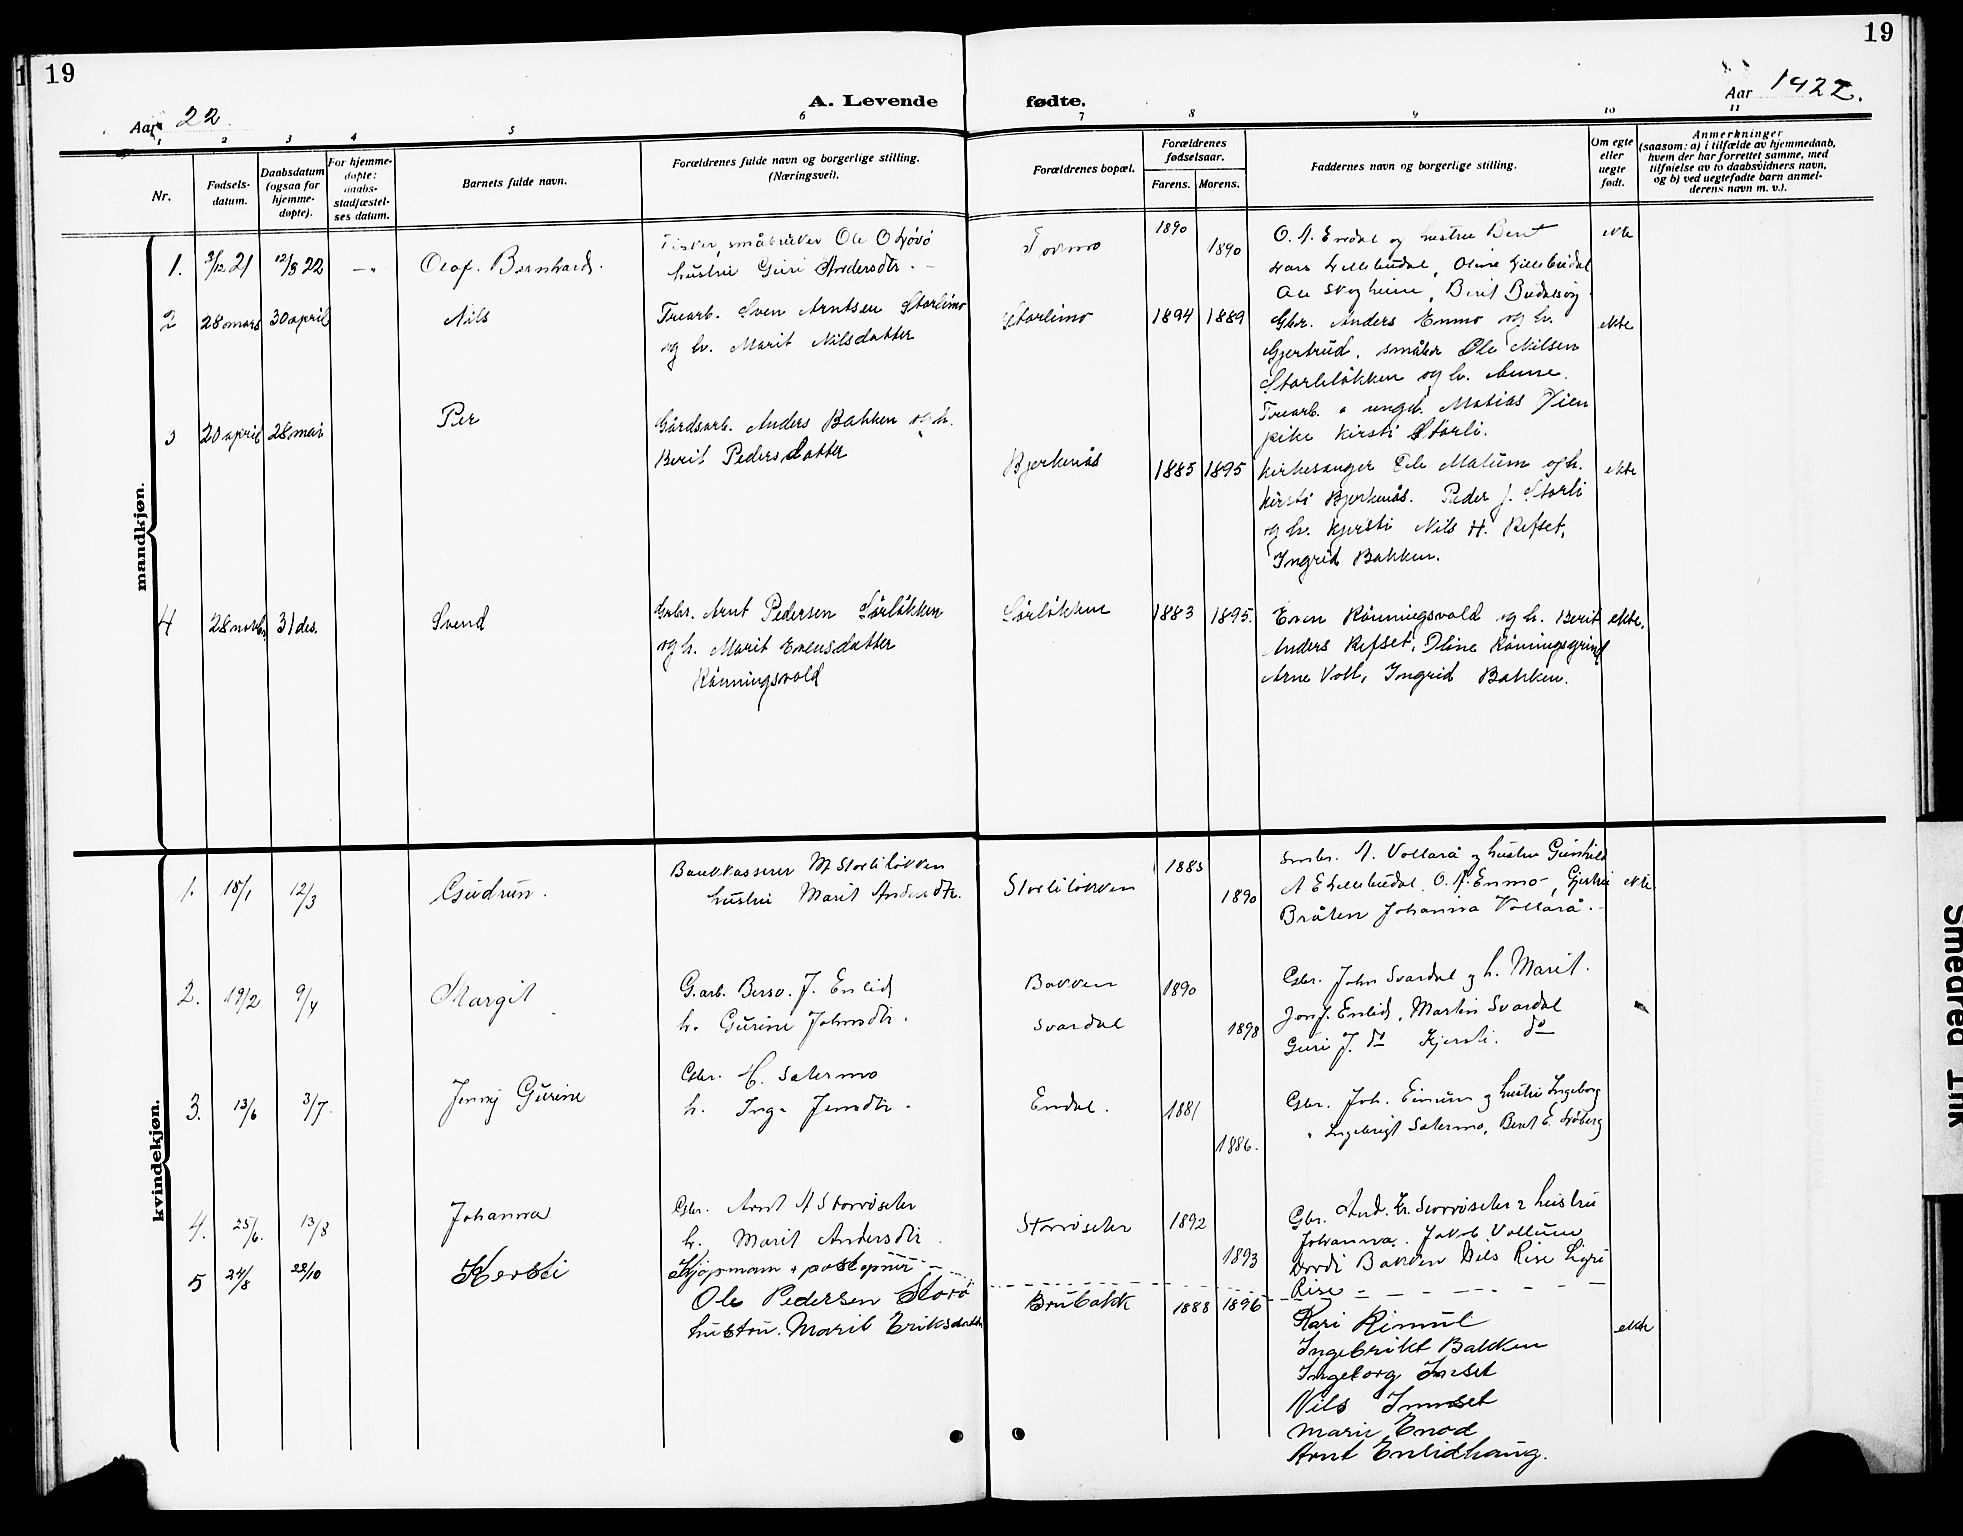 19
19
A. Levende fødte.
Aar 22.
Aar 1922.
1 2 3 4 5 6 7 8 9 10 11
Nr.
Fødsels-
datum.
Daabsdatum
(ogsaa for
hjemme-
døpte).
For hjemme-
døpte:
daabs-
stadfæstel-
ses datum.
Barnets fulde navn.
Forældrenes fulde navn og borgerlige stilling.
(Næringsvei).
Forældrenes bopæl.
Forældrenes
fødselsaar.
Farens. Morens.
Faddernes navn og borgerlige stilling.
Om egte
eller
uegte
født.
Anmerkninger
(saasom: a) i tilfælde av hjemmedaab,
hvem der har forrettet samme, med
tilføielse av to daabsvidners navn,
og b) ved uegtefødte barn anmel-
derens navn m. v.).
mandkjøn.
1. 3/12 21 12/3 22 -"- Olaf. Bernhard.
småbruker Ole O
hustru Guri Andersdtr.
1890 1890
O. A. Emdal og hustru Berit
Lars Lillebudal, Oline Lillebudal
Ole Skogheim, Berit Budalsvig
ekte
2 28 mars 30 april Nils
Trearb. Sven Arntsen Storlimo
og h. Marit Nilsdatter
Storlimo 1894 1889
Gbr. Anders Enmo og h.
Gjertrud, småbr Ole Nilsen
Storliløkken og h. Anne.
Trearb. o ungk. Matias Vien
pike Kirsti Storli.
ekte
3 20 april 28 mai Per
Gårdsarb. Anders Bakken og h.
Berit Pedersdatter
Bjerkenås 1885 1895
kirkesanger Ole Malum og h.
Kirsti Bjerkenås. Peder J. Storli
og h. Kjersti Nils H. Refset,
Ingrid Bakken.
ekte
4 28 novbr. 31 des. Svend
Gbr. Arnt Pedersen Sørløkken
og h. Marit Evensdatter
Rønningsvold
Sørløkken 1883 1895.
Even Rønningsvold og h. Berit
Anders Refset, Oline Rønningsgrind
Arne Voll, Ingrid Bakken.
ekte.
kvindekjøn.
1. 15/1 12/3 Gudrun.
Bankkasserer M Storliløkken
hustru Marit Andersdtr.
Storliløkken 1885 1890
Smbr. A. Vollaså og hustru Gunhild
A E Lillebudal. O. A. Enmo, Gjertru
Bråten Johanna Vollaså.
ekte
2. 19/2 9/4 Margit
G.arb. Bersv. J. Enlid
h. Gurine Johnsdtr.
Bakken
Svardal
1890 1898
Gbr. John Svardal og h. Marit.
Jon J. Enlid, Martin Svardal
Guri J. do Kjersti. do
3. 13/6 3/7 Jenny Gurine
Gbr. H. Sætermo
h. Inga Jensdtr.
Endal. 1881 1886.
Gbr. Joh. Einum og hustru Ingeborg
" Ingebrigt Sætermo, Berit E.
4. 25/6. 13/8 Johanna
Gbr. Arnt A Storrøseter
h. Marit Andersdtr.
Storrøseter 1892 1893
Gbr. And. Er. Storrøseter & hustru
Johanna. Jakob Vollum
Dordi Bakken Nils Rise Sigri
Rise
5 24/8 22/10 Kersti
Kjøpmann + postopner
Ole Pedersen Storø
hustru. Marit Eriksdatter
Brubakk 1888 1896
Kari Rimul
Ingebrikt Bakken
Ingeborg Inset
Nils Innset
Marie Enod
Arnt Enlidhaug.
ekte
Smeared Ink